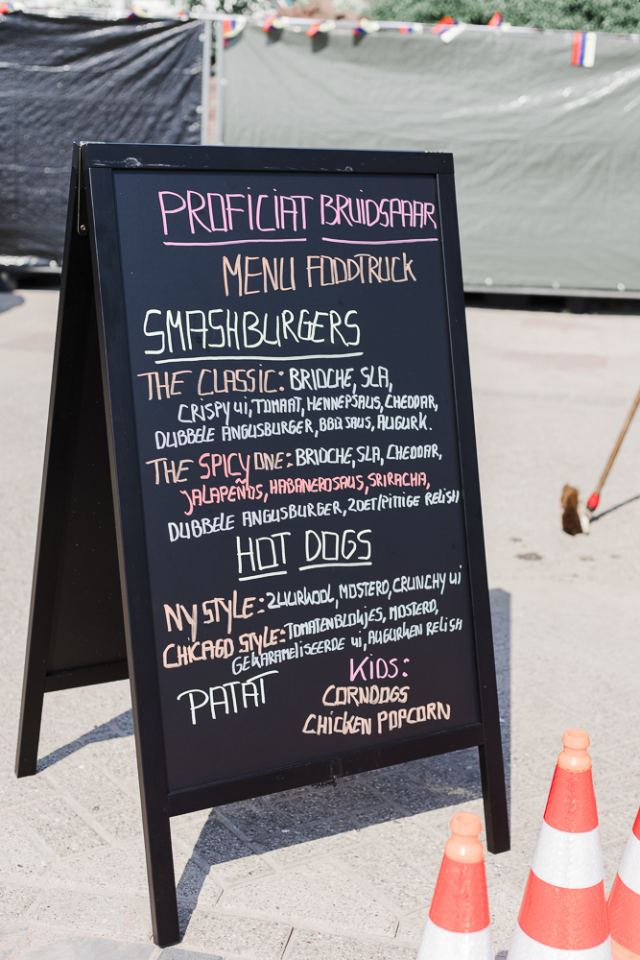 PROFICIAT BRUIDSPAAR
MENU FOODTRUCK
SMASHBURGERS
THE CLASSIC: BRIOCHE, SLA,
CRISPY UI, TOMAAT, HENNEPSAUS, CHEDDAR,
DUBBELE ANGUSBURGER, BBQ SAUS, AUGURK.
THE SPICY ONE: BRIOCHE, SLA, CHEDDAR,
JALAPEÑOS, HABANEROSAUS, SRIRACHA,
DUBBELE ANGUSBURGER, ZOET/PITTIGE RELISH
HOT DOGS
NY STYLE: ZUURKOOL, MOSTERD, CRUNCHY UI
CHICAGO STYLE: TOMATENBLOKJES, MOSTERD,
GEKARAMELISEERDE UI, AUGURKEN RELISH
KIDS:
PATAT CORNDOGS
CHICKEN POPCORN